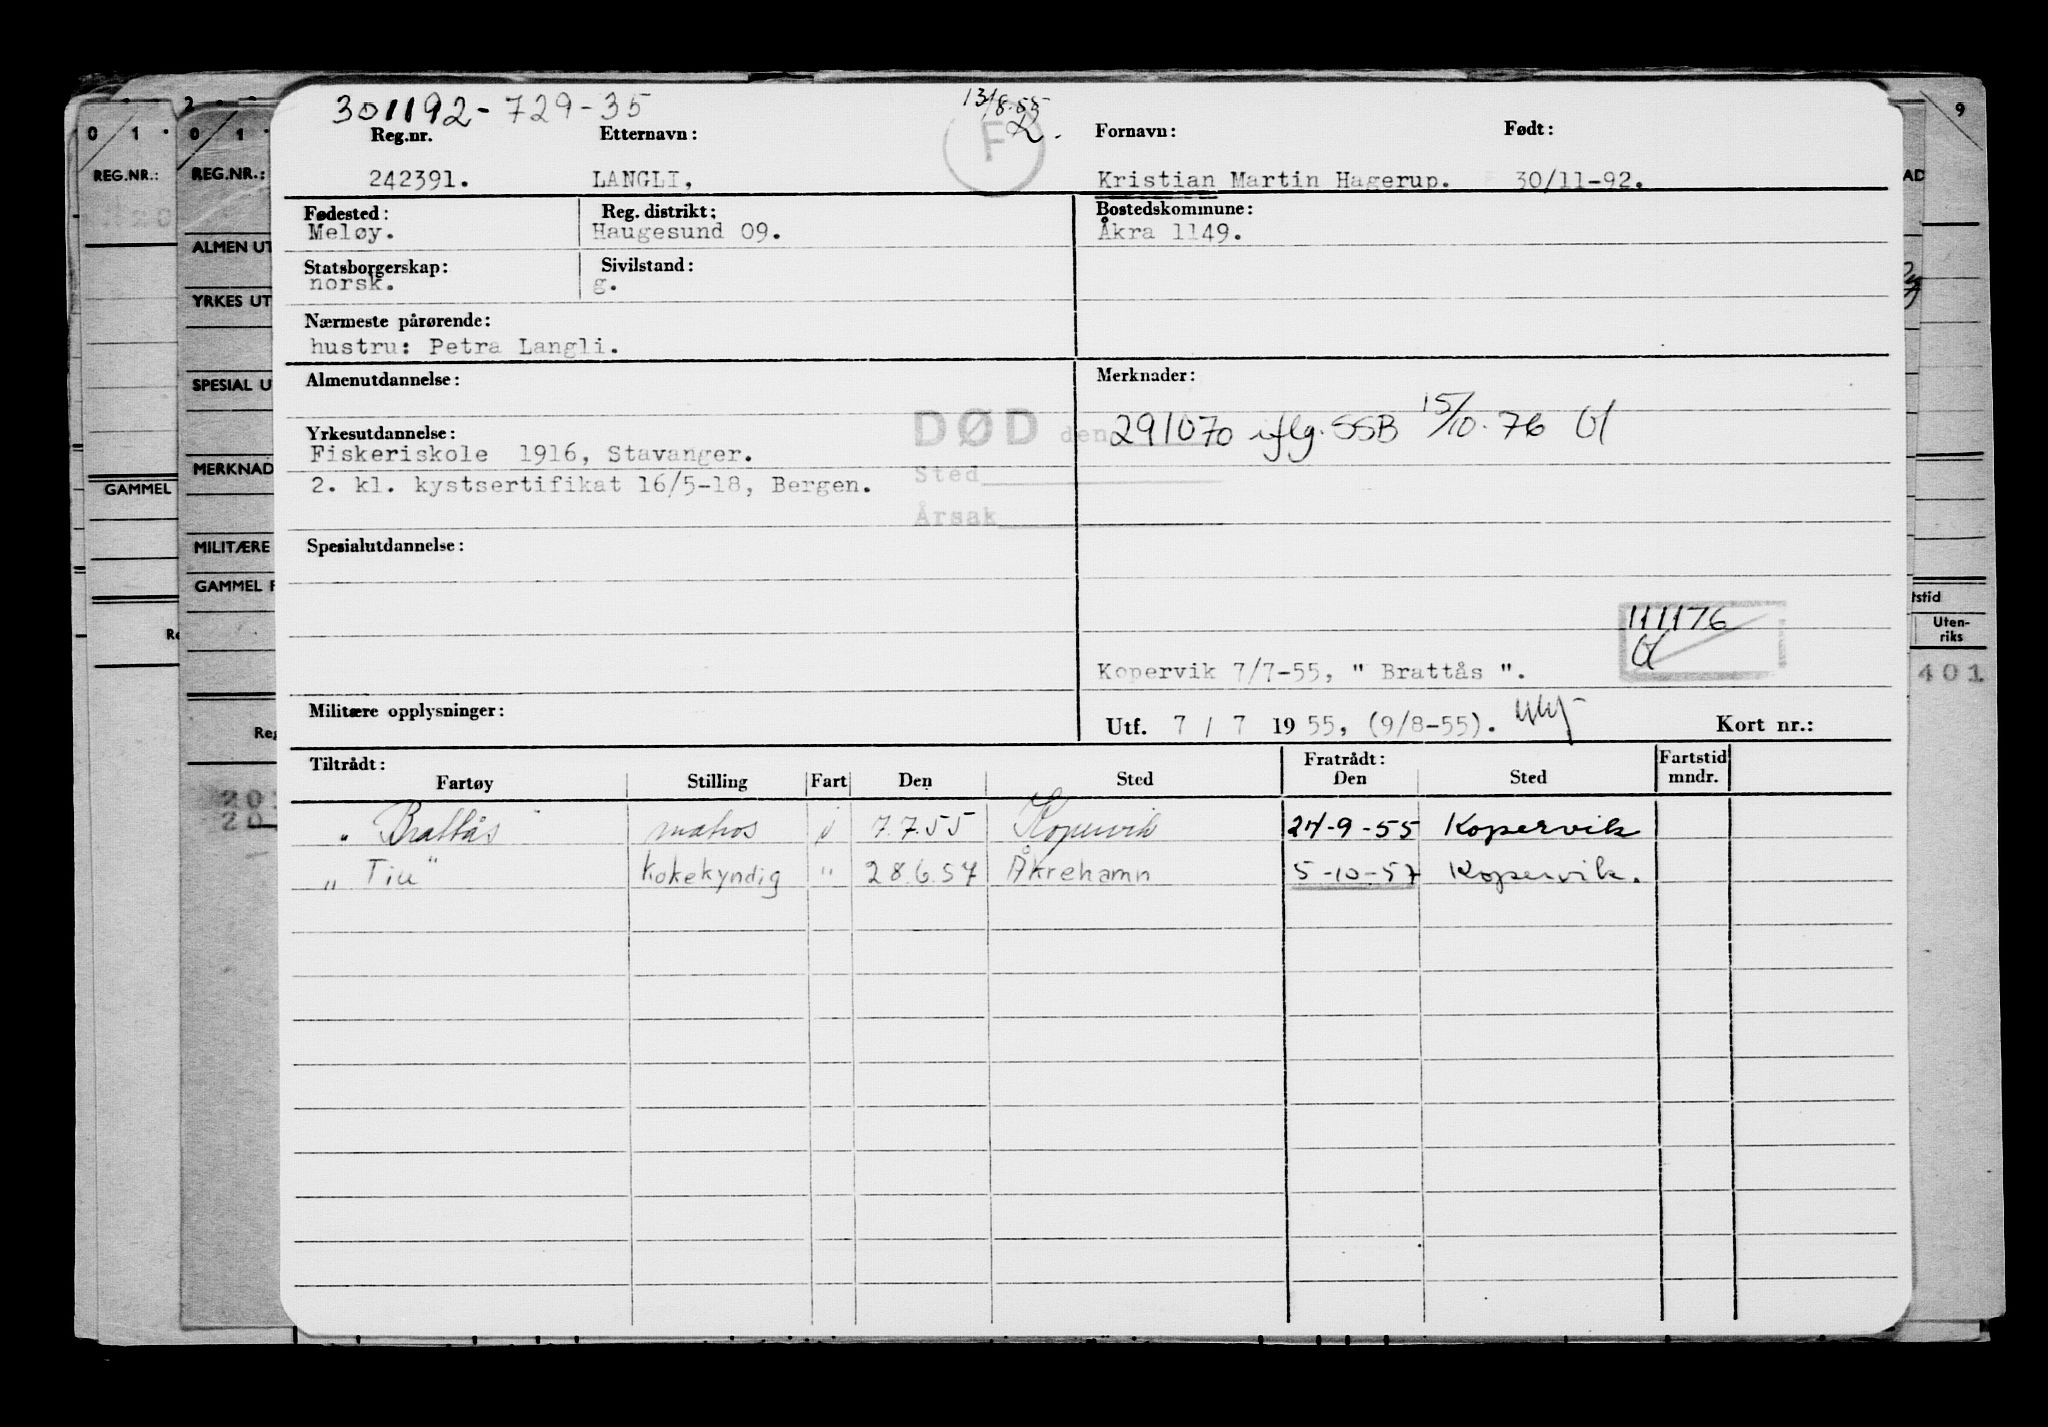 301192-729-35
13/8.55
Reg.nr. Etternavn: F Fornavn: Født:
242391. LANGLI, Kristian Martin Hagerup. 30/11-92.
Fødested: Reg. distrikt: Bostedskommune:
Meløy. Haugesund 09. Åkra 1149.
Statsborgerskap: Sivilstand:
norsk. g.
Nærmeste pårørende:
hustru: Petra Langli.
Almenutdannelse: Merknader:
DØD den 291070 iflg. SSB 15/10-76
Yrkesutdannelse:
Fiskeriskole 1916, Stavanger.
Sted
2. kl. kystsertifikat 16/5-18, Bergen.
Årsak
Spesialutdannelse:
111176
Kopervik 7/7-55, " Brattås ".
Militære opplysninger: Utf. 7 / 7 1955, (9/8-55). Kort nr.:
Tiltrådt: Fratrådt: Fartstid
Fartøy Stilling Fart Den Sted Den Sted mndr.
" Brattås " matros 7.7.55 Kopervik 24-9-55 Kopervik
" Tiu " kokekyndig " 28.6.57 Åkrehamn 5-10-57 Kopervik.
0 1 .
REG.NR.:
GAMMEL
2
0 1 .
REG.NR.:
ALMEN UT
YRKES UT
SPESIAL U
MERKNAD
MILITÆRE
GAMMEL F
Reg
20
9
AD
tstid
Uten-
riks
401